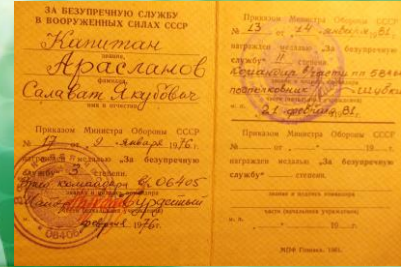 ЗА БЕЗУПРЕЧНУЮ СЛУЖБУ
В ВООРУЖЕННЫХ СИЛАХ СССР
Капитан
звание
Арасланов
фамилия
Салават Якубович
имя и отчество
Приказом Министра Обороны СССР
№ 17 от „ 9 „ января 1976 г.
награжден медалью „За безупречную
службу“ 3 степени.
командира 06405
звание и подпись командира
части (начальника учреждения)
февраля 1976 г.
Приказом Министра Обороны СССР
№ 23 от „ 24 „ января 81 г.
награжден медалью „За безупречную
службу“ II степени.
Командир части пп
подполковник
21 февраля 81.
Приказом Министра Обороны СССР
№ от „ „ 19 г.
награжден медалью „За безупречную
службу“ степени.
звание и подпись командира
части (начальника учреждения)
м. п. „ „ 19 г.